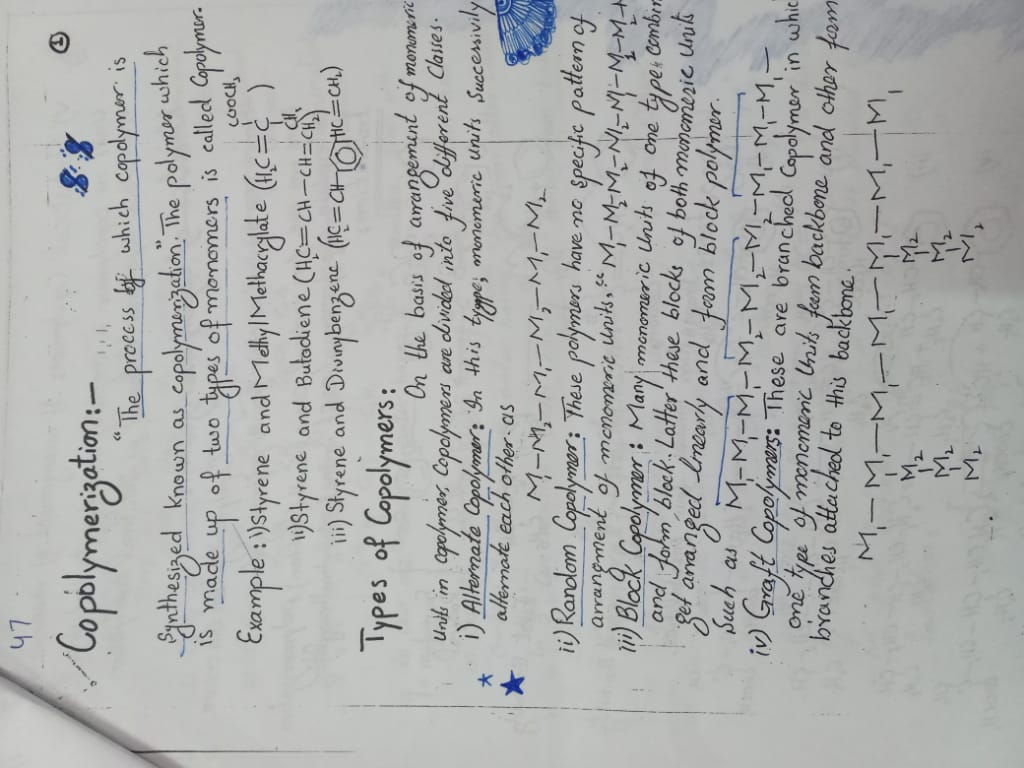 47
Copolymerization:-
"The process by which copolymer is
Synthesized known as copolymerization". The polymer which
is made up of two types of monomers is called Copolymer.
Example: i) Styrene and Methyl Methacrylate (H₂C=C )
COOCH₃
CH₃
ii) Styrene and Butadiene (H₂C=CH-CH=CH₂)
iii) Styrene and Divinylbenzene (H₂C=CH- HC=CH₂)
Types of Copolymers:
On the basis of arrangement of monomeric
units in copolymer, Copolymers are divided into five different Classes.
i) Alternate Copolymer: In this type; monomeric units Successively
alternate each other as
M₁-M₂-M₁-M₂-M₁-M₂
ii) Random Copolymer: These polymers have no specific pattern of
arrangement of monomeric units. M₁-M₂-M₂-M₁-M₂-M₂
iii) Block Copolymer: Many monomeric units of one type combin
and form block. Latter these blocks of both monomeric units
get arranged linearly and form block polymer.
Such as M₁-M₁-M₁-M₂-M₂-M₂-M₁-M₁-M₁-
iv) Graft Copolymers: These are branched Copolymer in whic
one type of monomeric Units form backbone and other form
branches attached to this backbone.
M₁-M₁-M₁-M₁-M₁-M₁-M₁
M₂ M₂
M₂ M₂
M₂ M₂